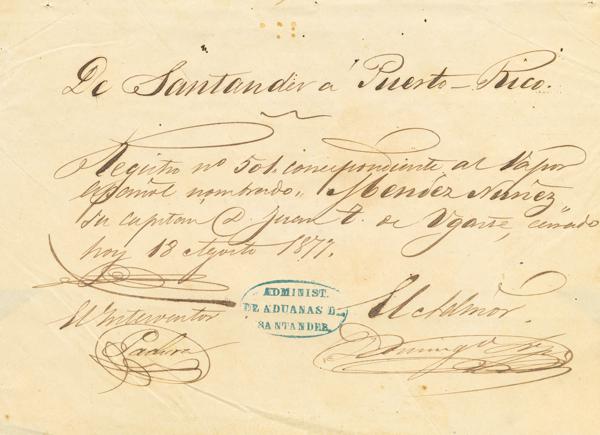 De Santander a Puerto-Rico.
Registro nº 501. correspondiente al Vapor
español nombrado, Mendez Nuñez,
su capitan D. Juan T. de Ugarte, cerrado
hoy 18 Agosto 1877.
El Interventor
El Admor.
ADMINIST.
DE ADUANAS D
SANTANDER
Domingo